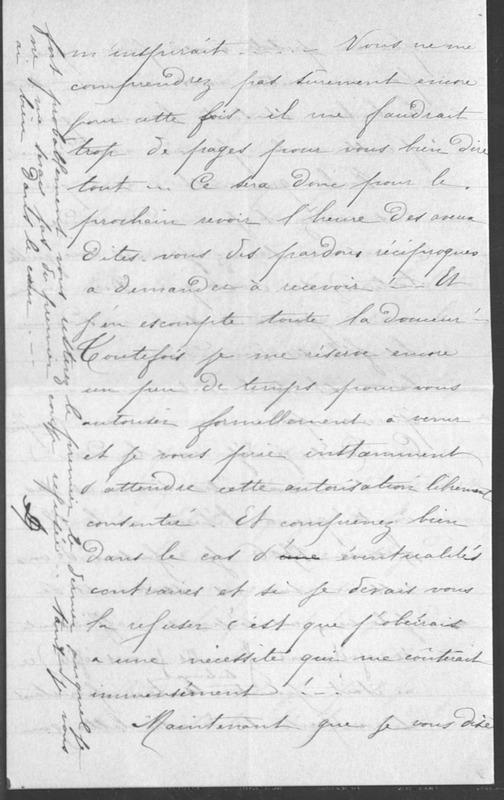 m'inspirait . . — Vous ne me
comprendrez pas surement encore
pour cette fois. il me faudrait
trop de pages pour vous bien dire
tout . . Ce sera donc pour le
prochain revoir l'heure des aveux
dites-vous des pardons réciproques
a demander a recevoir ! — Et
j'en escompte toute la douceur !
Toutefois je me réserve encore
un peu de temps pour vous
autoriser formellement a venir
et je vous prie instamment
d'attendre cette autorisation librement
consentie. Et comprenez bien
dans le cas d'une éventualités
contraires et si je devais vous
la refuser c'est que j'obéirais
a une nécessité qui me coûterait
immensément ! — .
Maintenant que je vous dise
fort probablement vous resterez le premier, le dernier auquel je
ne me serai pas du premier coup refusée . . tant je vous
ai bien dans le cœur . . .